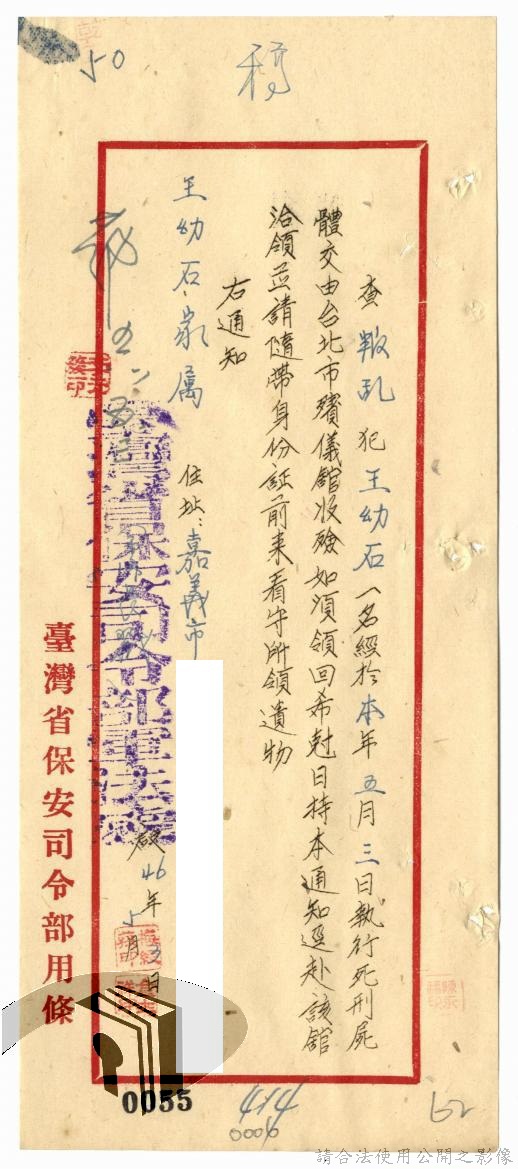 稿
50
查叛乱犯王幼石一名經於本年五月三日執行死刑屍
體交由台北市殯儀館收殮如須領回希尅日持本通知逕赴該館
洽領並請隨帶身份証前来看守所領遺物
右通知
王幼石家属
住址：嘉義市
啟46年5月3日
臺灣省保安司令部軍法處
臺灣省保安司令部用條
0055
414
0006
62
請合法使用公開之影像